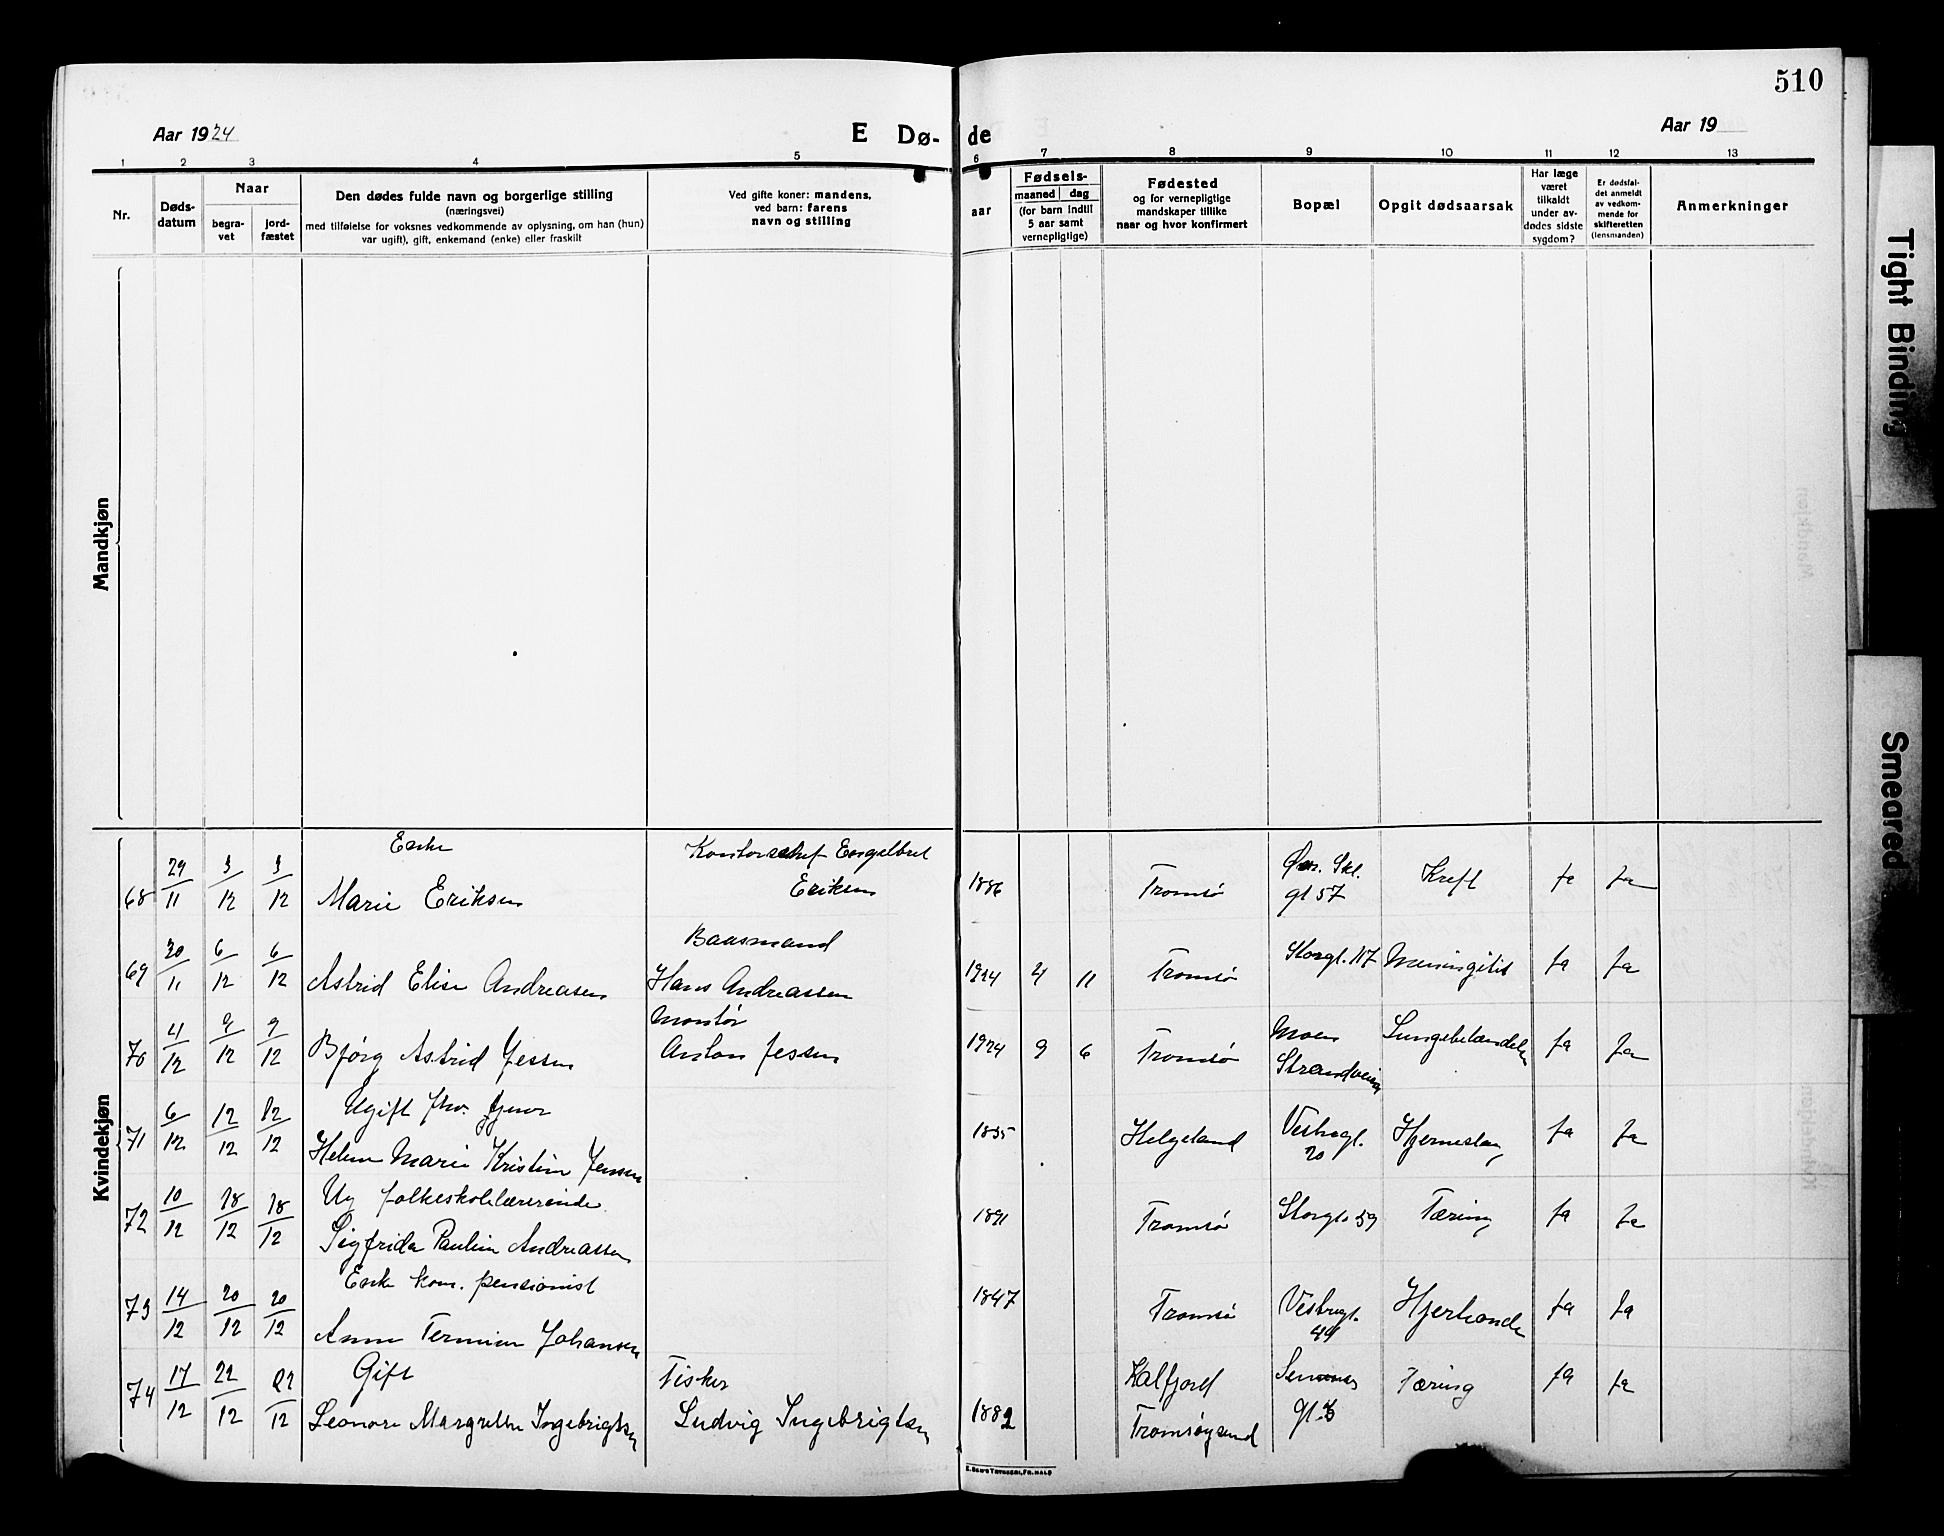 510
Aar 1924
E Dø-de
Aar 19
1 2 3 4 5 6 7 8 9 10 11 12 13
Nr.
Døds-datum
Naar
begra-vet
jord-fæstet
Den dødes fulde navn og borgerlige stilling
(næringsvei)
med tilføielse for voksnes vedkommende av oplysning, om han (hun)
var ugift), gift, enkemand (enke) eller fraskilt
Ved gifte koner: mandens,
ved barn: farens
navn og stilling
Fødsels-
aar
maaned dag
(for barn indtil
5 aar samt
vernepligtige)
Fødested
og for vernepligtige
mandskaper tillike
naar og hvor konfirmert
Bopæl
Opgit dødsaarsak
Har læge
været
tilkaldt
under av-
dødes sidste
sygdom?
Er dødsfal-
det anmeldt
av vedkom-
mende for
skifteretten
(lensmanden)
Anmerkninger
Mandkjøn
Kvindekjøn
68 29/11 3/12 3/12 Enke Marie Eriksen Kontorschef Engelbret Eriksen 1886 Tromsø Skl. gt 57 Kreft Ja Ja
69 30/11 6/12 6/12 Astrid Elise Andreasen Baasmand Hans Andreassen 1924 4 11 Tromsø Storgt. 117 Meningitis Ja Ja
70 4/12 9/12 9/12 Bjørg Astrid Jessen Montør Anton Jessen 1924 9 6 Tromsø Moen Strandveien Lungebetændelse Ja Ja
71 6/12 12/12 12/12 Ugift fhv. Helene Marie Kristine Jensen 1835 Helgeland Vestregt. 20 Hjerneslag Ja Ja
72 10/12 18/12 18/12 Ug folkeskolelærerinde Sigfrida Pauline Andreassen 1891 Tromsø Storgt. 59 Tæring Ja Ja
73 14/12 20/12 20/12 Enke kom. pensionist Anne Johansen 1847 Tromsø Vestregt. 49 Ja Ja
74 17/12 22/12 22/12 Gift Leonore Margrethe Ingebrigtsen Fisker Ludvig Ingebrigtsen 1882 Kalfjord Tromsøysund gt. 3 Tæring Ja Ja
Tight Binding
Smeared